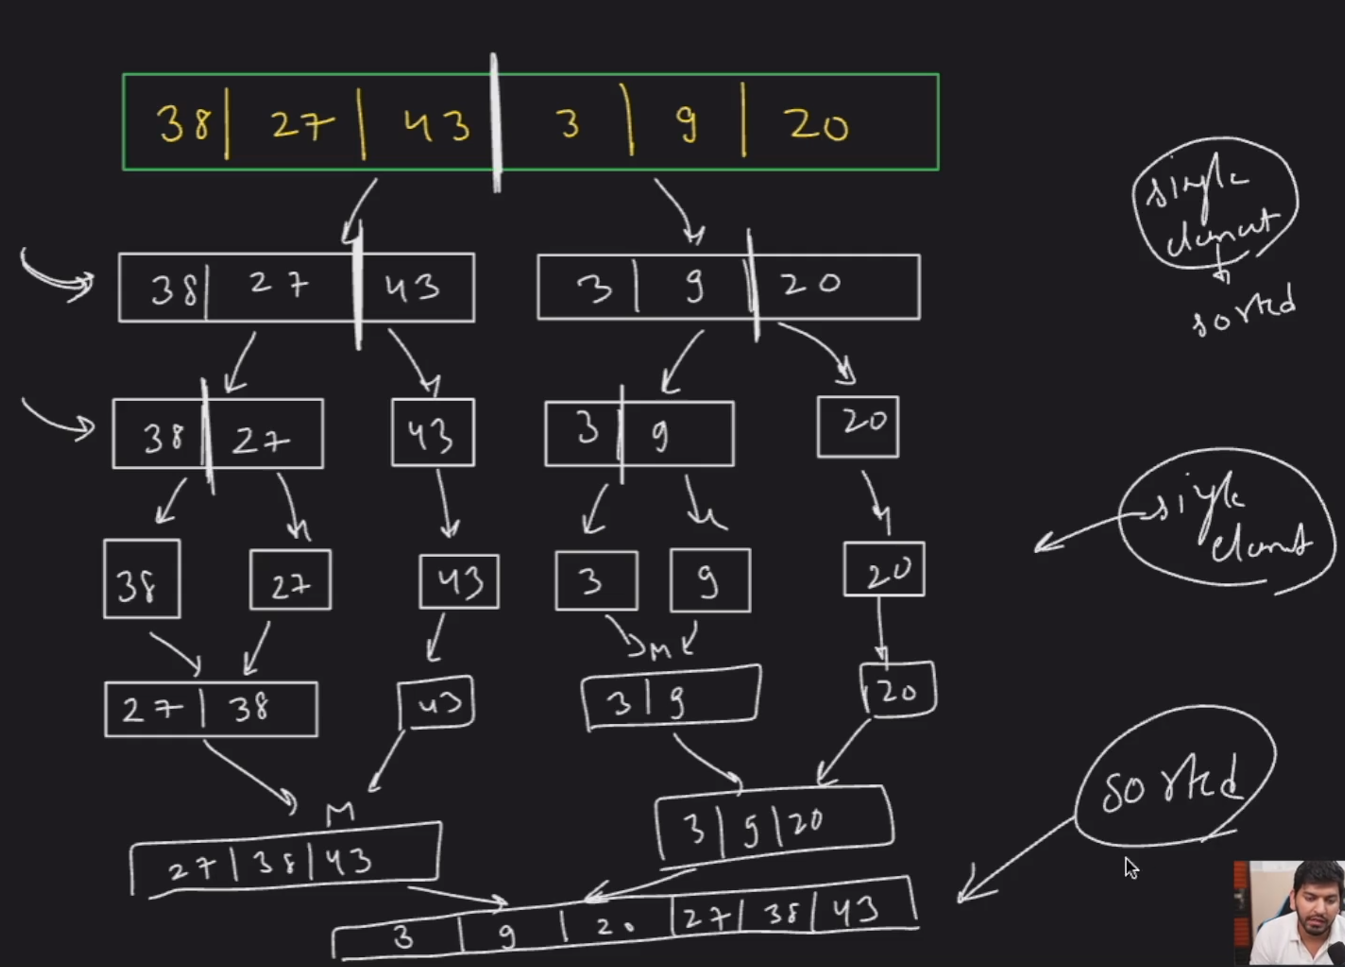 38 | 27 | 43 | 3 | 9 | 20
single
element
sorted
38 | 27 | 43
3 | 9 | 20
38 | 27
43
3 | 9
20
single
element
38
27
43
3
9
20
M
27 | 38
43
3 | 9
20
sorted
M
3 | 9 | 20
27 | 38 | 43
3 | 9 | 20 | 27 | 38 | 43